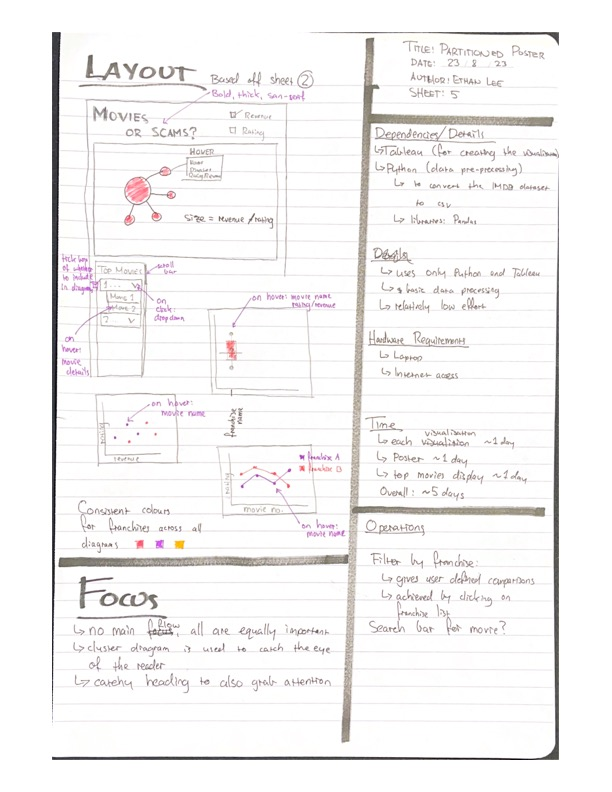 LAYOUT
Based off sheet 2
Bold, thick, san-serif
MOVIES
OR SCAMS?
Revenue
Rating
HOVER
SIZE = revenue / rating
tick box
of whether
to include
in diagram
scroll
bar
TOP MOVIES
1 ... V
Movie 1
Movie 2
2 V
on
click:
dropdown
on
hover:
movie
details
on hover: movie name
rating/revenue
franchise
name
on hover:
movie name
revenue
franchise A
franchise B
movie no.
on hover:
movie name
Consistent colours
for franchises across all
diagrams
FOCUS
no main flow, all are equally important
cluster diagram is used to catch the eye
of the reader
catchy heading to also grab attention
TITLE: PARTITIONED POSTER
DATE: 23 8 23
AUTHOR: ETHAN LEE
SHEET: 5
Dependencies/Details
Tableau (for creating the visualisation)
Python (data pre-processing)
to convert the IMDB dataset
to csv
libraries: Pandas
Details
uses only Python and Tableau
basic data processing
relatively low effort
Hardware Requirements
Laptop
Internet access
Time
visualisation
each visualision ~1 day
Poster ~1 day
top movies display ~1 day
Overall: ~5 days
Operations
Filter by franchise:
gives user defined comparisons
achieved by clicking on
franchise list
Search bar for movie?